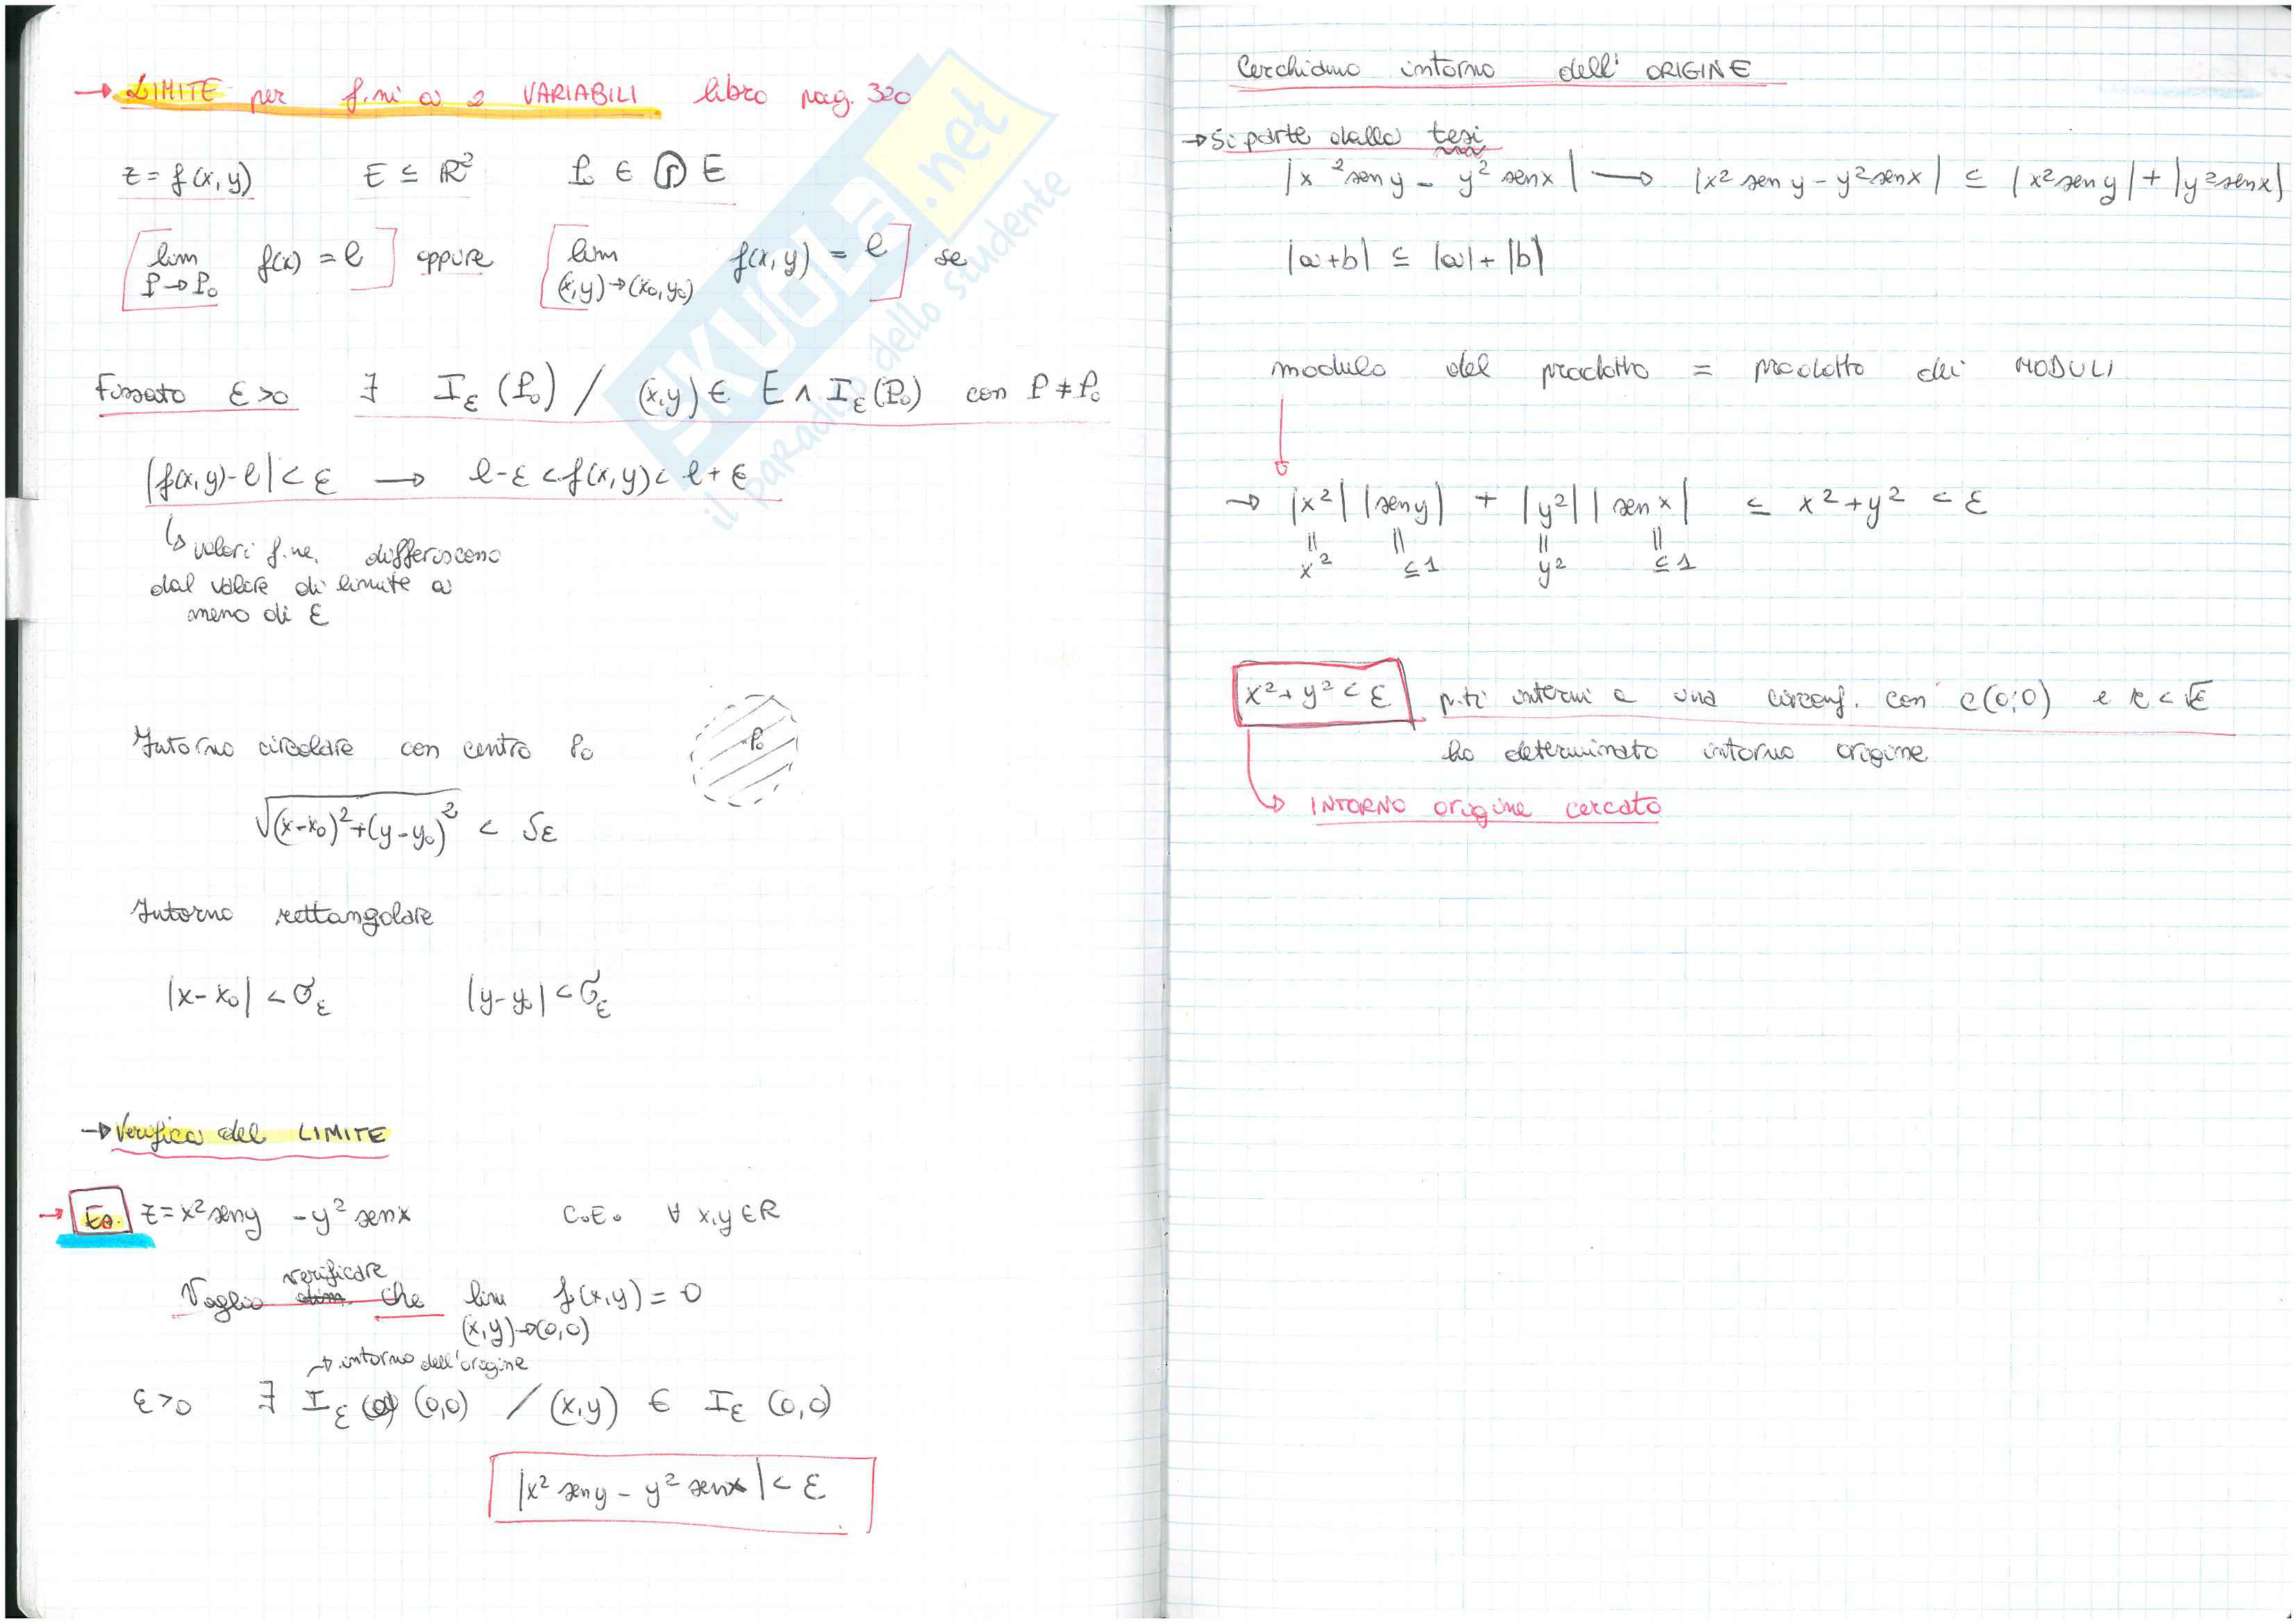 → LIMITE per f.ni a 2 VARIABILI libro pag. 320
z = f(x,y) E ⊆ ℝ² P₀ ∈ D E
lim f(x) = l oppure lim f(x,y) = l se
P→P₀ (x,y)→(x₀,y₀)
Fissato ε>0 ∃ I_ε (P₀) / (x,y) ∈ E ∧ I_ε (P₀) con P ≠ P₀
|f(x,y)-l| < ε → l-ε < f(x,y) < l+ε
↳ valori f.ne. differiscono
dal valore di limite a
meno di ε
Intorno circolare con centro P₀
P₀
√(x-x₀)²+(y-y₀)² < δε
Intorno rettangolare
|x-x₀| < σ_ε |y-y₀| < σ_ε
→ Verifica del LIMITE
→ Es. z = x² sen y - y² sen x C.E. ∀ x,y ∈ R
verificare
Voglio che lim f(x,y) = 0
(x,y)→(0,0)
→ intorno dell'origine
ε>0 ∃ I_ε (0,0) / (x,y) ∈ I_ε (0,0)
|x² sen y - y² sen x| < ε
Cerchiamo intorno dell' ORIGINE
→ Si parte dalla tesi
|x² sen y - y² sen x| → |x² sen y - y² sen x| ≤ |x² sen y| + |y² sen x|
|a+b| ≤ |a|+|b|
modulo del prodotto = prodotto dei MODULI
→ |x²| |sen y| + |y²| |sen x| ≤ x²+y² < ε
= = = =
x² ≤1 y² ≤1
x²+y² < ε p.ti interni a una circonf. con c(0;0) e r < √ε
ho determinato intorno origine
↳ INTORNO origine cercato
SKUOLA.net
il paradiso dello studente